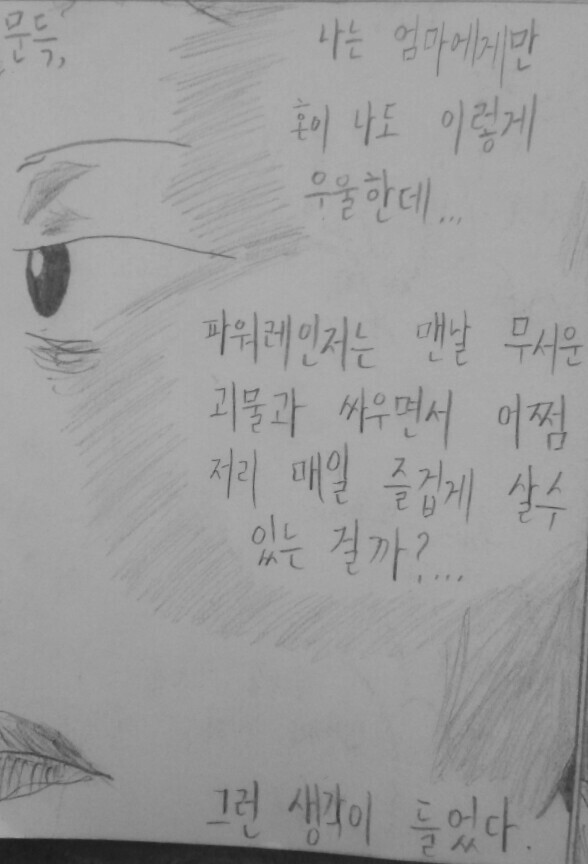 문득,
나는 엄마에게만
혼이 나도 이렇게
우울한데...
파워레인저는 맨날 무서운
괴물과 싸우면서 어쩜
저리 매일 즐겁게 살수
있는 걸까?...
그런 생각이 들었다.